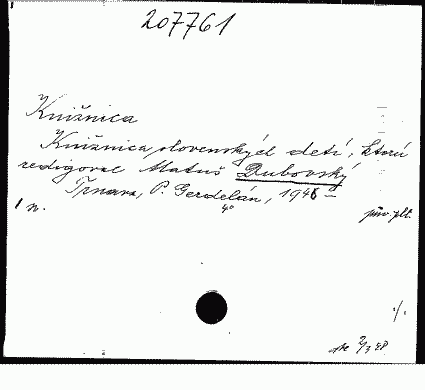 207761
Knižnica
Knižnica slovenských detí, ktorú
redigoval Matuš Dubovský
Trnava, P. Gerdelán, 1946
4°
1 n. pôv. plt.
2/3 48